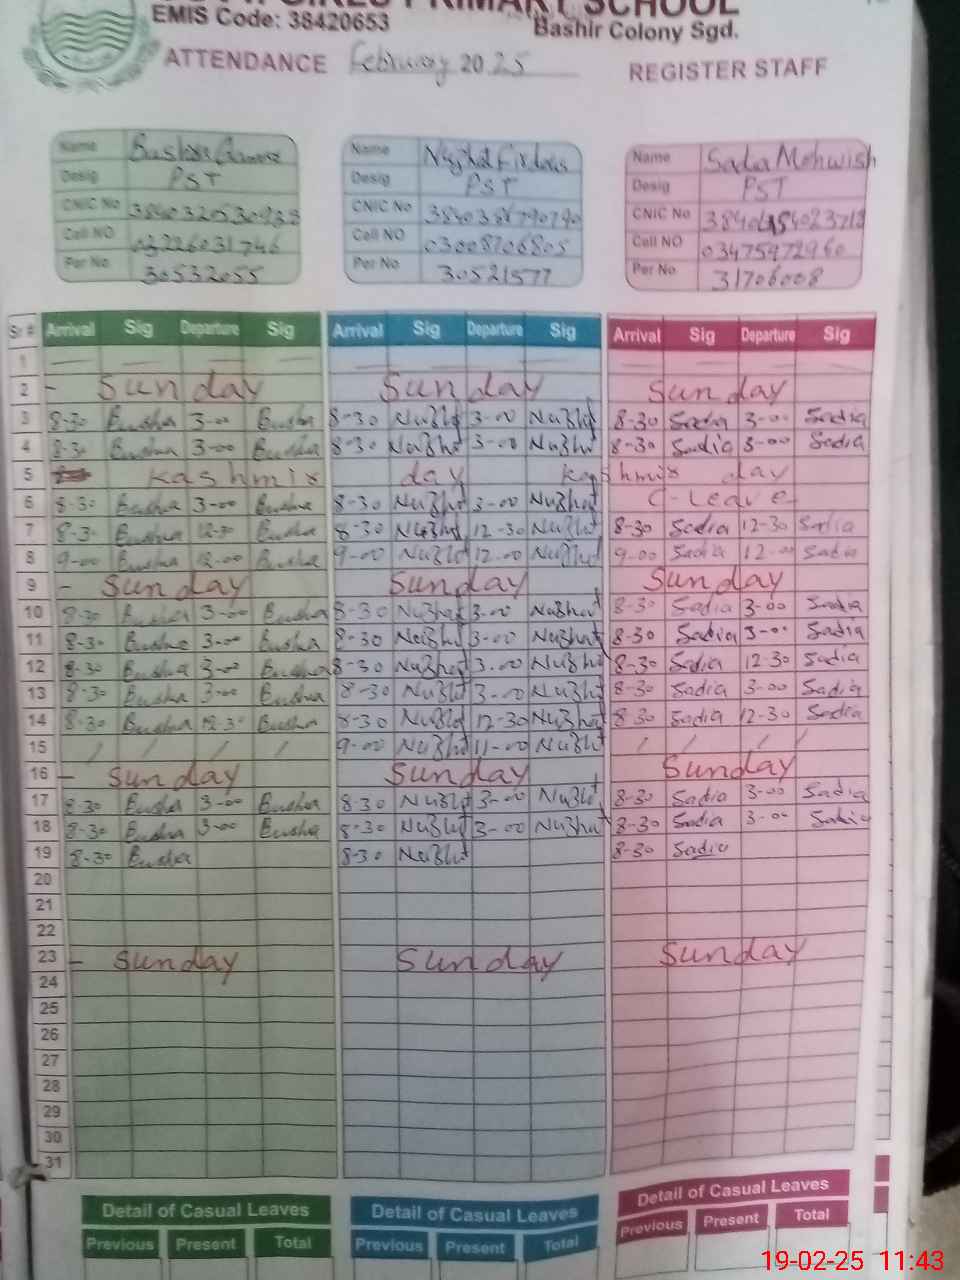 GIRLS PRIMARY SCHOOL
EMIS Code: 38420653
Bashir Colony Sgd.
ATTENDANCE February 2025 REGISTER STAFF
Name Bushra Name Nuzhat Firdous Name Sadia Mehwish
Desig PST Desig PST Desig PST
CNIC No CNIC No CNIC No
Cell NO 03226031746 Cell NO 03008706805 Cell NO 03475972960
Per No 30532055 Per No 30521577 Per No 31706008
Sr # Arrival Sig Departure Sig Arrival Sig Departure Sig Arrival Sig Departure Sig
1
2 - Sunday Sunday Sunday
3 8-30 Bushra 3-00 Bushra 8-30 Nuzhat 3-00 Nuzhat 8-30 Sadia 3-00 Sadia
4 8-30 Bushra 3-00 Bushra 8-30 Nuzhat 3-00 Nuzhat 8-30 Sadia 3-00 Sadia
5 Kashmir day Kashmir day
6 8-30 Bushra 3-00 Bushra 8-30 Nuzhat 3-00 Nuzhat C-Leave
7 8-30 Bushra 12-30 Bushra 8-30 Nuzhat 12-30 Nuzhat 8-30 Sadia 12-30 Sadia
8 9-00 Bushra 12-00 Bushra 9-00 Nuzhat 12-00 Nuzhat 9-00 Sadia 12-00 Sadia
9 - Sunday Sunday Sunday
10 8-30 Bushra 3-00 Bushra 8-30 Nuzhat 3-00 Nuzhat 8-30 Sadia 3-00 Sadia
11 8-30 Bushra 3-00 Bushra 8-30 Nuzhat 3-00 Nuzhat 8-30 Sadia 3-00 Sadia
12 8-30 Bushra 3-00 Bushra 8-30 Nuzhat 3-00 Nuzhat 8-30 Sadia 12-30 Sadia
13 8-30 Bushra 3-00 Bushra 8-30 Nuzhat 3-00 Nuzhat 8-30 Sadia 3-00 Sadia
14 8-30 Bushra 12-30 Bushra 8-30 Nuzhat 12-30 Nuzhat 8-30 Sadia 12-30 Sadia
15 / / / / 9-00 Nuzhat 11-00 Nuzhat / / / /
16 - Sunday Sunday Sunday
17 8-30 Bushra 3-00 Bushra 8-30 Nuzhat 3-00 Nuzhat 8-30 Sadia 3-00 Sadia
18 8-30 Bushra 3-00 Bushra 8-30 Nuzhat 3-00 Nuzhat 8-30 Sadia 3-00 Sadia
19 8-30 Bushra 8-30 Nuzhat 8-30 Sadia
20
21
22
23 - Sunday Sunday Sunday
24
25
26
27
28
29
30
31
Detail of Casual Leaves Detail of Casual Leaves Detail of Casual Leaves
Previous Present Total Previous Present Total Previous Present Total
19-02-25 11:43